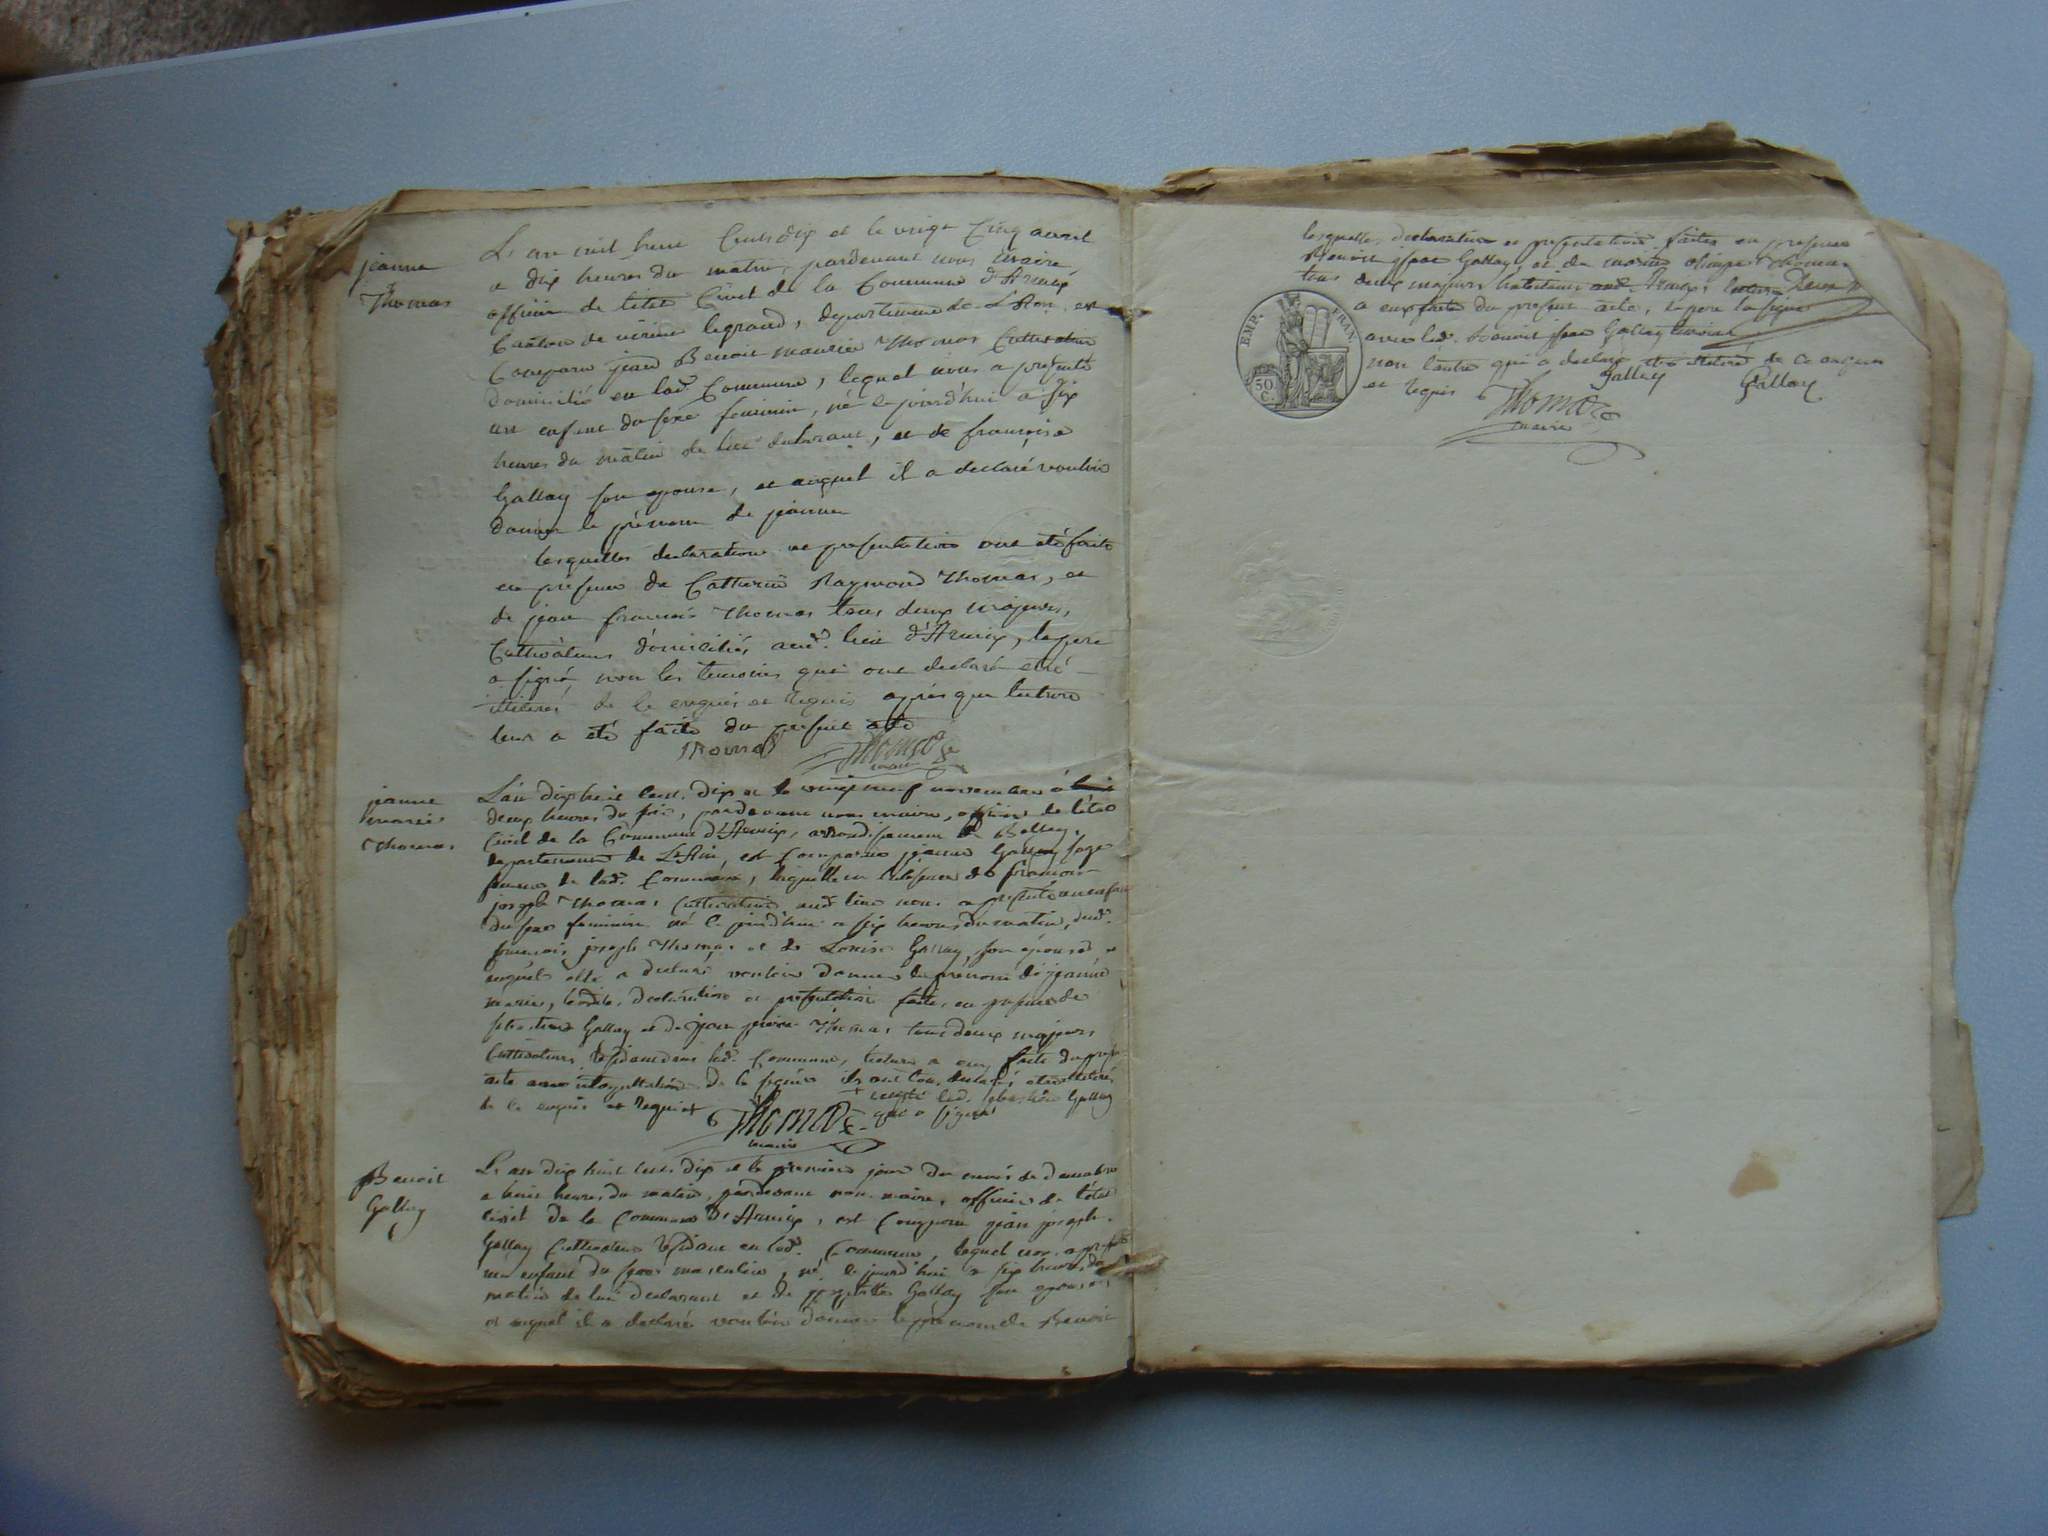 jeanne
Thomas
L'an mil huit Cents dix et le vingt Cinq avril
a dix heures du matin, pardevant nous maire
officier de l'état Civil de la Commune d'Armix
Canton de virieu legrand, département de L'Ain, est
Comparu jean Benoit maurice Thomas Cultivateur
domicilié en lad. Commune, lequel nous a presenté
un enfant du sexe feminin, né ce jourd'hui a six
heures du matin de lui declarant, et de françoise
Gallay son epouse, et auquel il a declaré vouloir
donner le prénom de jeanne
lesquelles declaration et presentation ont été faite
en présence de Catherin Raymond Thomas, et
de jean françois Thomas tous deux majeurs,
Cultivateurs domiciliés aud. lieu d'Armix, le pere
a signé non les temoins qui ont declaré etre
illitérés de ce enquis et requis après que lecture
leur a été faite du present acte
Thomas Thomas
maire
jeanne
marie
Thomas
L'an dix huit cent dix et le vingt neuf novembre à
deux heures du soir, pardevant nous maire, officier de l'état
Civil de la Commune d'Armix, arrondissement de Belley,
departement de L'Ain, est Comparue jeanne Gallay sage
femme de lad. Commune, laquelle en l'absence de françois
joseph Thomas Cultivateur aud. lieu nous a presenté un enfant
du sexe feminin né ce jourd'hui a six heures du matin, dud.
françois joseph Thomas et de Louise Gallay, son épouse et
auquel elle a declaré vouloir donner le prénom de jeanne
marie, lesdites declaration et presentation faite en presence de
Gallay et de jean Thomas tous deux majeurs
Cultivateurs résidant dans lad. Commune, lecture a eux faite du present
acte avec interpellation de le signer ils ont tous declaré etre illitérés
de ce enquis et requis + excepté led. Gallay
qui a signé
Thomas
maire
Benoit
Gallay
L'an dix huit cent dix et le premier jour du mois de decembre
a huit heures du matin, pardevant nous maire, officier de l'état
civil de la Commune d'Armix, est Comparu jean joseph
Gallay Cultivateur résidant en lad. Commune, lequel nous a presenté
un enfant du sexe masculin, né ce jourd'hui a six heures du
matin de lui declarant et de josephte Gallay son epouse,
et auquel il a declaré vouloir donner le prénom de Benoit
lesquelles declaration et presentation faites en presence
Benoit Gallay, et de Thomas
tous deux majeurs aud. Armix, lecture
a eux faite du present acte, le pere l'a signé
avec led. benoit Gallay temoin
non l'autre qui a declaré etre illitéré de ce enquis
et requis Gallay Gallay
Thomas
maire
EMP. FRAN.
50
C.